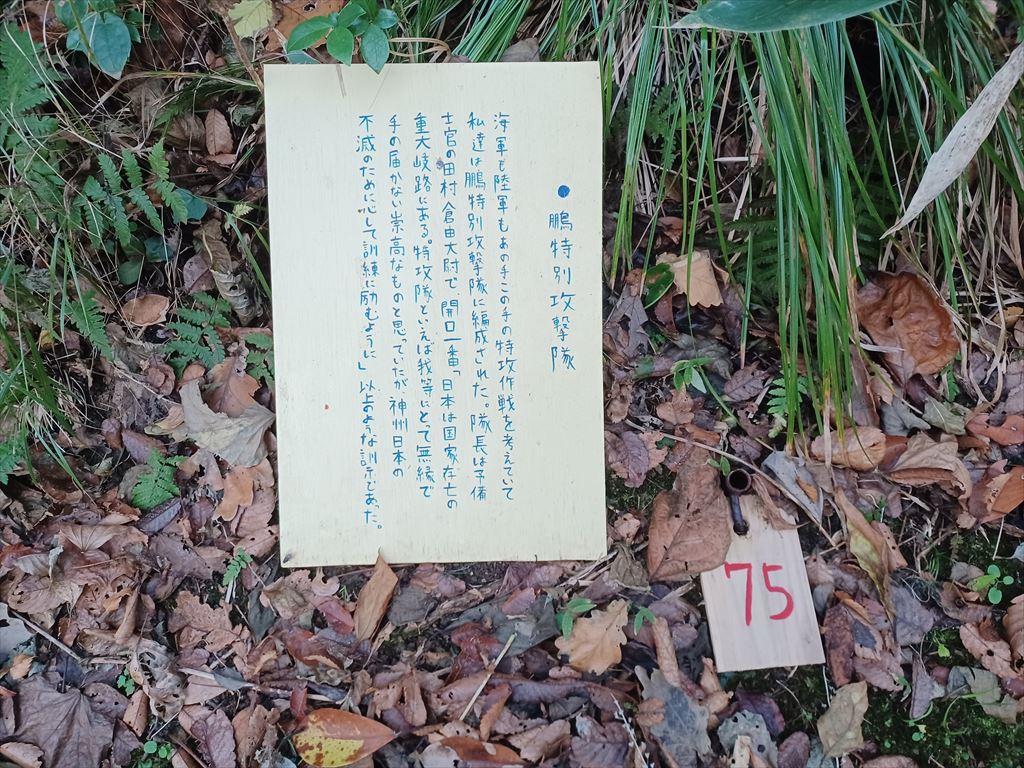 ●鵬特別攻撃隊
海軍も陸軍もあの手この手の特攻作戦を考えていて
私達は鵬特別攻撃隊に編成された。隊長は予備
士官の田村倉由大尉で、開口一番「日本は国家存亡の
重大岐路にある。特攻隊といえば我等にとって無縁で
手の届かない崇高なものと思っていたが神州日本の
不滅のために心して訓練に励むように」以上のような訓示であった。
75